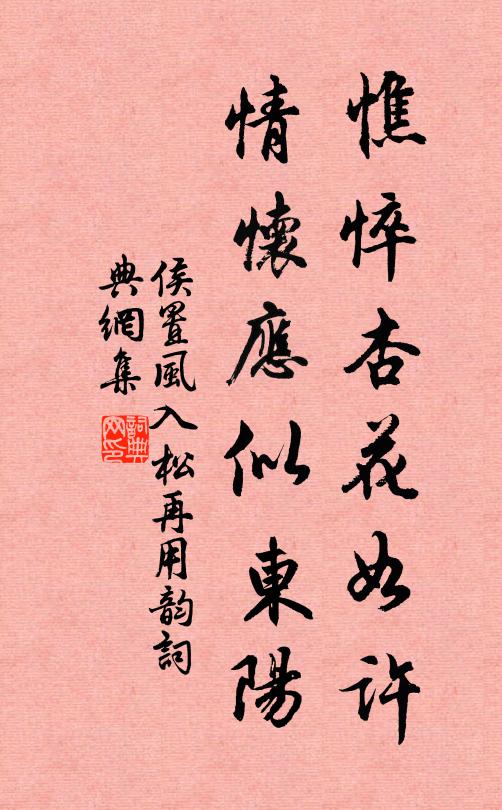 憔悴杏花如許
情懷應似東陽
侯置風入松再用韵詞
典網集
詞典网印